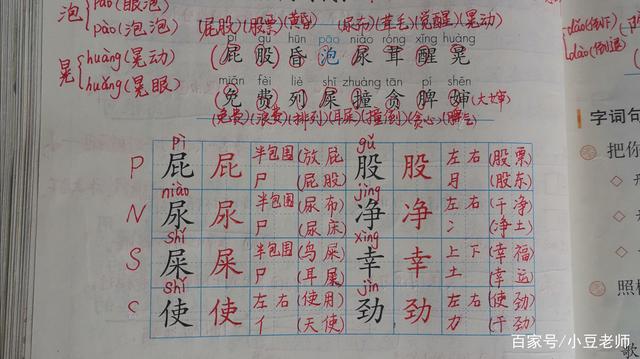 泡 pào(眼泡)
pāo(泡泡)
晃 huàng(晃动)
huǎng(晃眼)
(屁股)(股票)(黄昏) (尿布)(茸毛)(觉醒)(晃动)
pì gǔ hūn pào niào róng xǐng huàng
屁 股 昏 泡 尿 茸 醒 晃
miǎn fèi liè shǐ zhuàng tān pí shěn
免 费 列 屎 撞 贪 脾 婶(大婶)
(免费)(浪费)(排列)(耳屎)(撞倒)(贪心)(脾气)
pì gǔ
P 屁 屁 半包围 (放屁 股 股 左右 (股票
尸 (屁股) 月 (股东)
niào jìng
N 尿 尿 半包围 (尿布) 净 净 左右 (干净)
尸 (尿床) 冫 (净土)
shǐ xìng
S 屎 屎 半包围 (鸟屎) 幸 幸 上下 (幸福
尸 (耳屎) 土 (幸运)
shǐ jìn
C 使 使 左右 (使用) 劲 劲 左右 (使劲)
亻 (天使) 力 (干劲)
dào(倒退)
字词句
把你
照样
歌
百家号/小豆老师